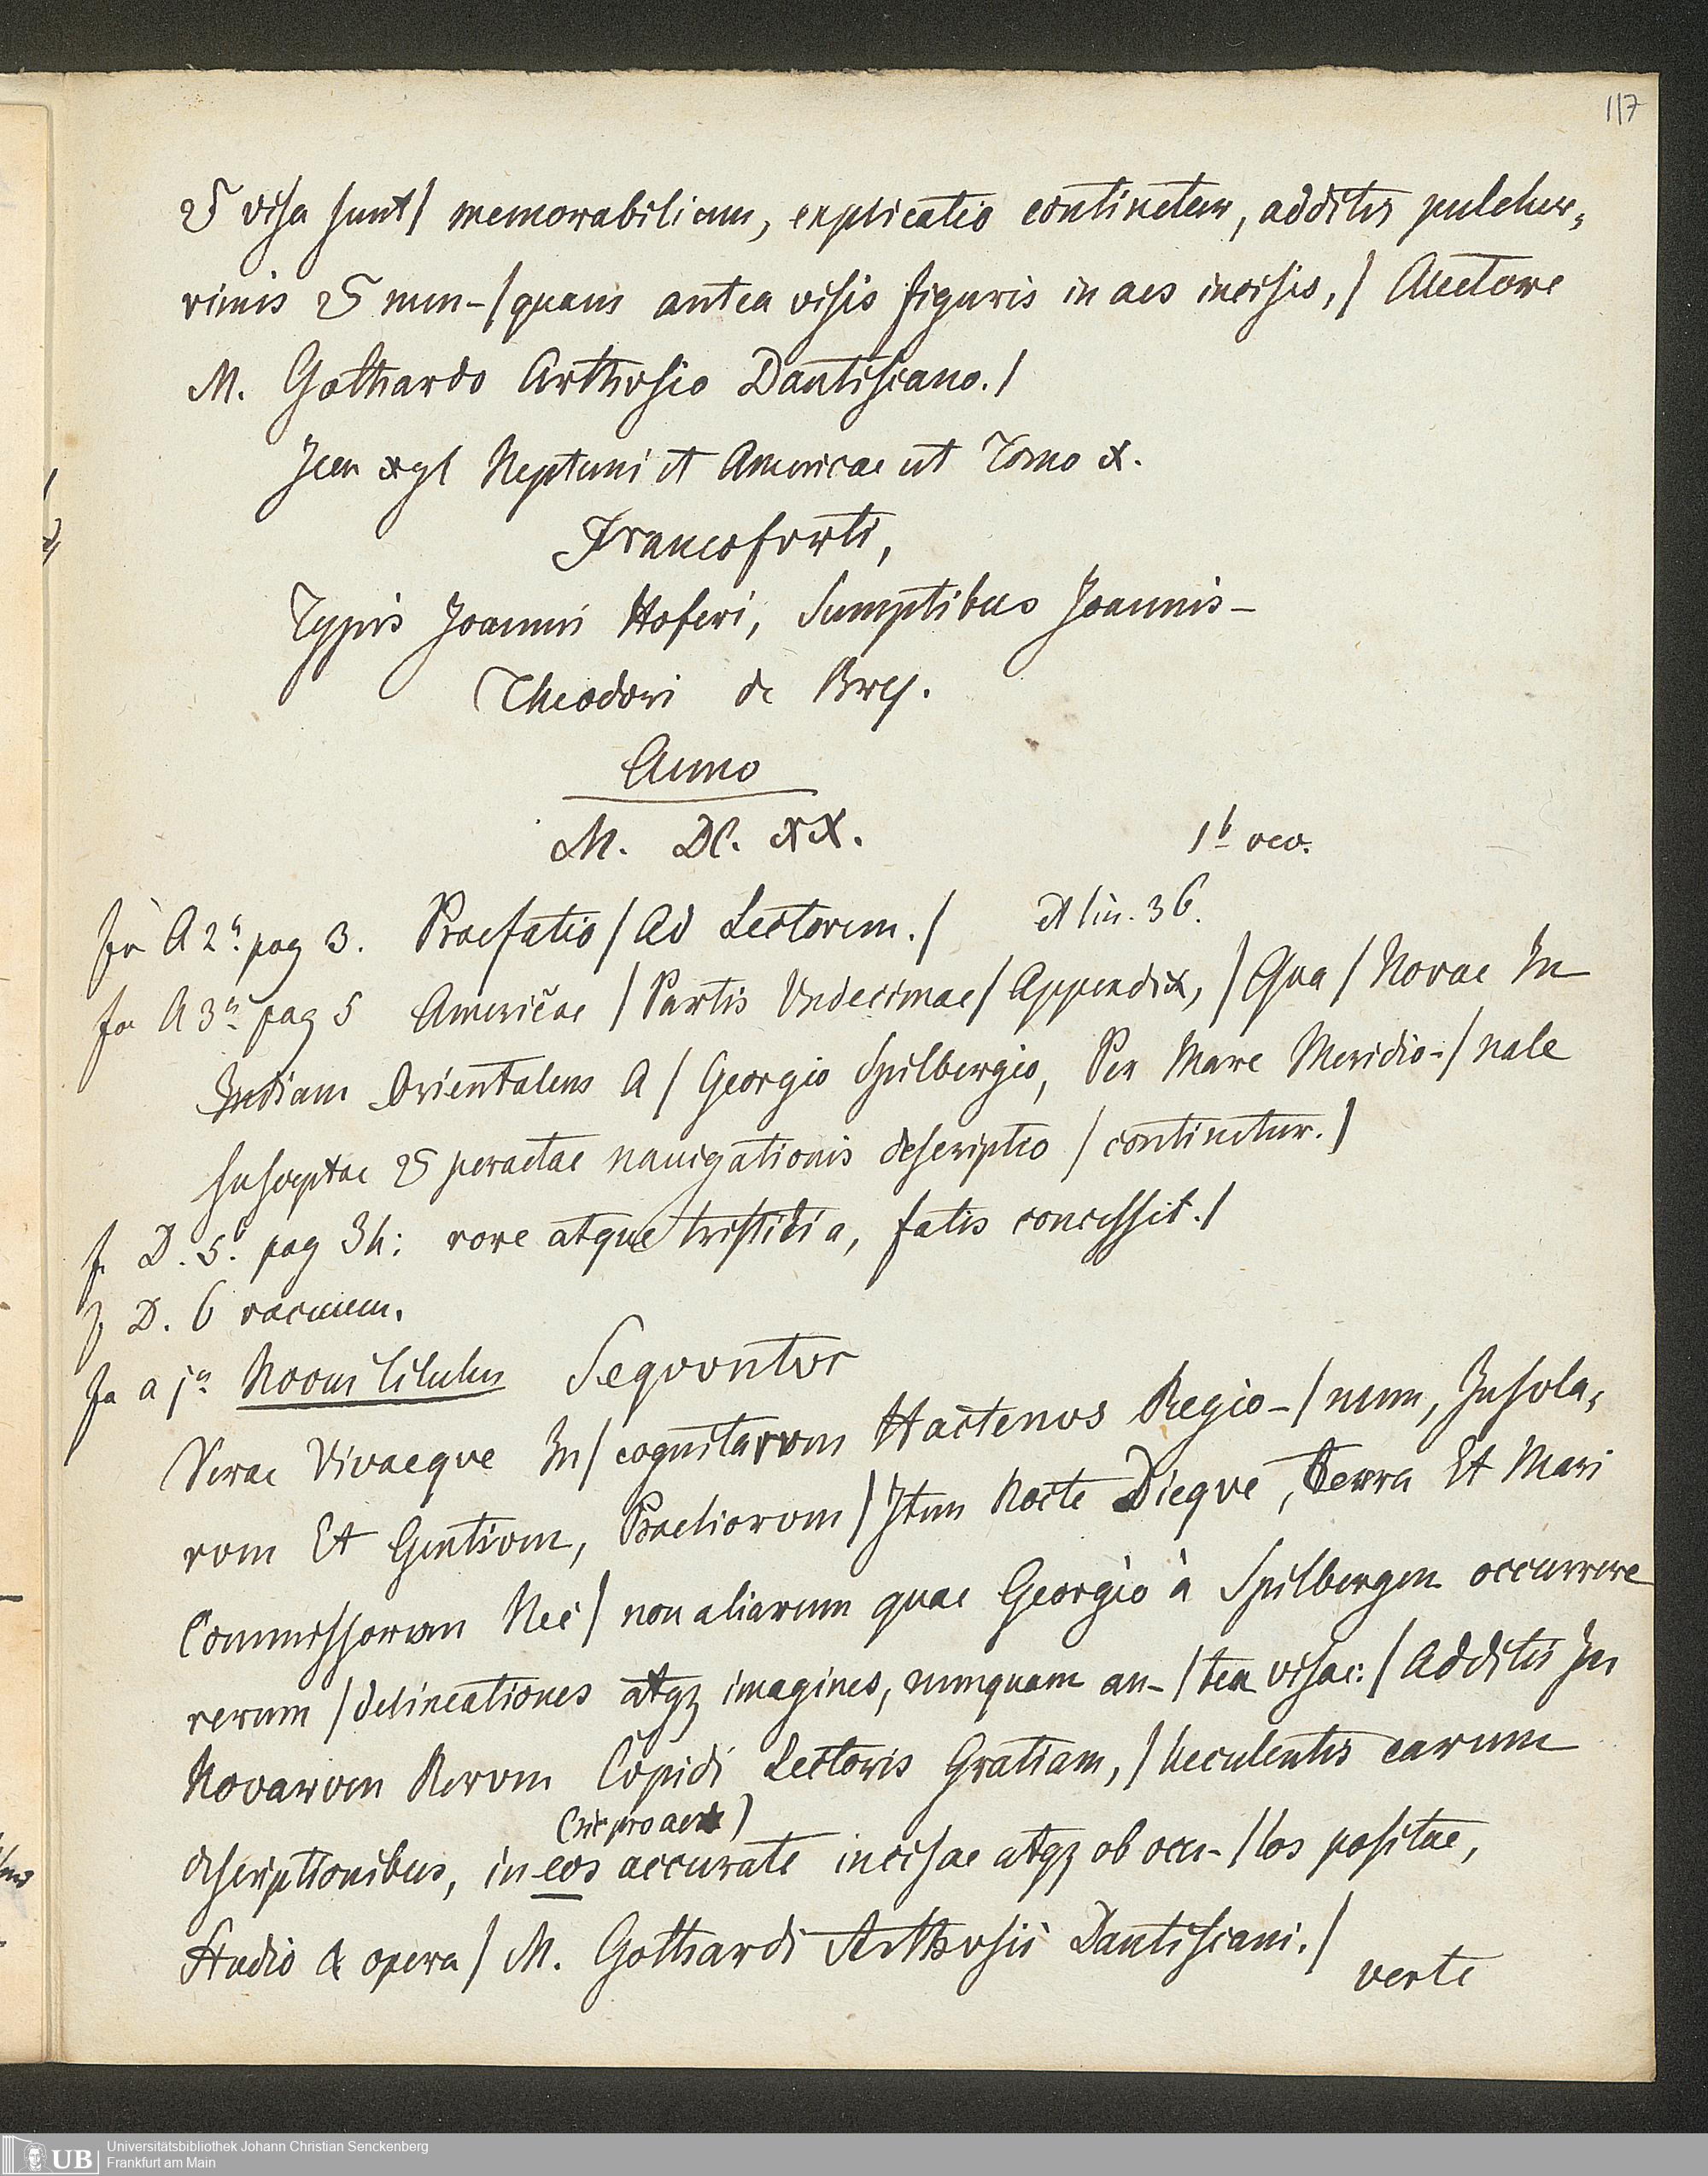 117
& visa sunt / memorabilium, explicatio continetur, additis pulcher,
rimis & nun-/quam antea visis figuris in aes incisis, / Auctore
M. Gothardo Arthusio Dantiscano. /
Icon xyl Neptuni et Americae ut Tomo X.
Francofurti,
Typis Joannis Hoferi, Sumptibus Joannis-
Theodori de Bry.
Anno
M. DC. XX.
1b vev.
fo A 2a pag 3. Praefatio / Ad Lectorem. / et lin. 36.
fo A 3a pag 5 Americae / Partis Undecimae / Appendix, / Qua / Novae In
Indiam Orientalem A / Georgio Spilbergio, Per Mare Meridio-/nale
susceptae & peractae navigationis descriptio / continetur. /
f. D. 5. pag 34: rore atque tristitia, fatis concessit. /
f. D. 6 vacuum.
fo a 1a Novus titulus Seqvuntvr
Verae Vivaeqve In/cognitarvm Hactenvs Regio-/num, Insvla,
rvm Et Gentivm, Praeliorvm / Item Nocte Dieqve, Terra Et Mari
Commissorvm Nec / non aliarum quae Georgio à Spilbergen occurrere
rerum / delineationes atqz imagines, nunquam an-/tea visae: / Additis In
Novarvm Rervm Cvpidi Lectoris Gratiam, / luculentis earum
(sic pro aere)
descriptionibus, in eos accurate incisae atqz ob ocu-/los positae,
Studio & opera / M. Gothardi Arthvsii Dantiscani. /
verte
Universitätsbibliothek Johann Christian Senckenberg
Frankfurt am Main
UB